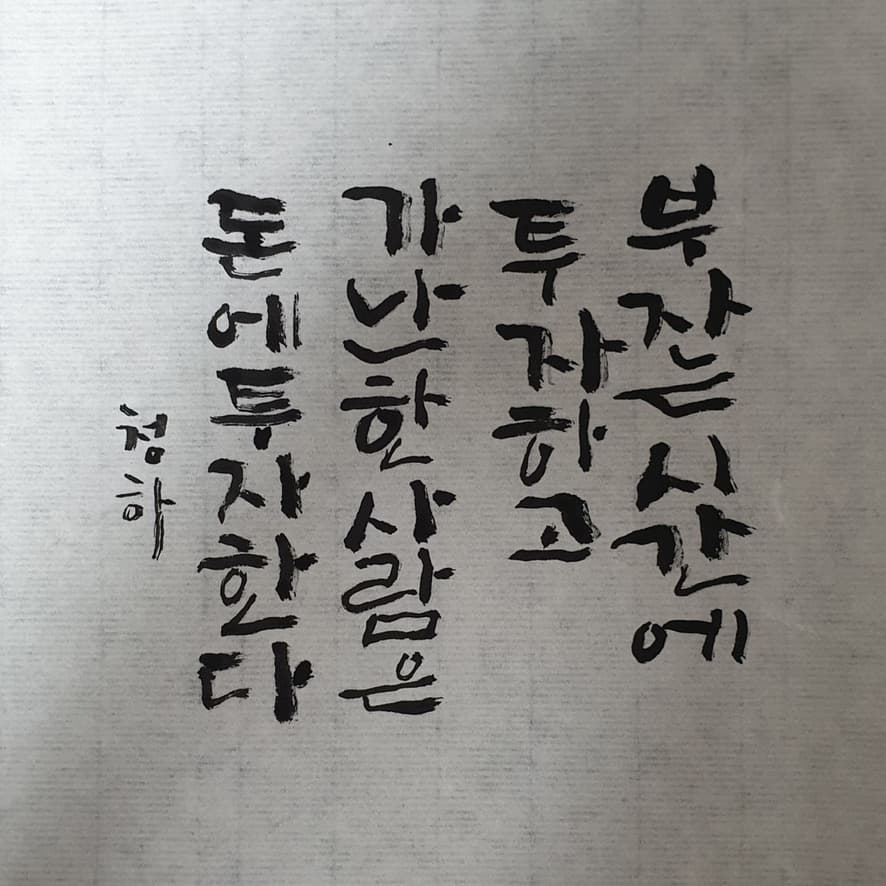 부잔은 시간에
투자하고
가난한 사람은
돈에 투자한다
청하